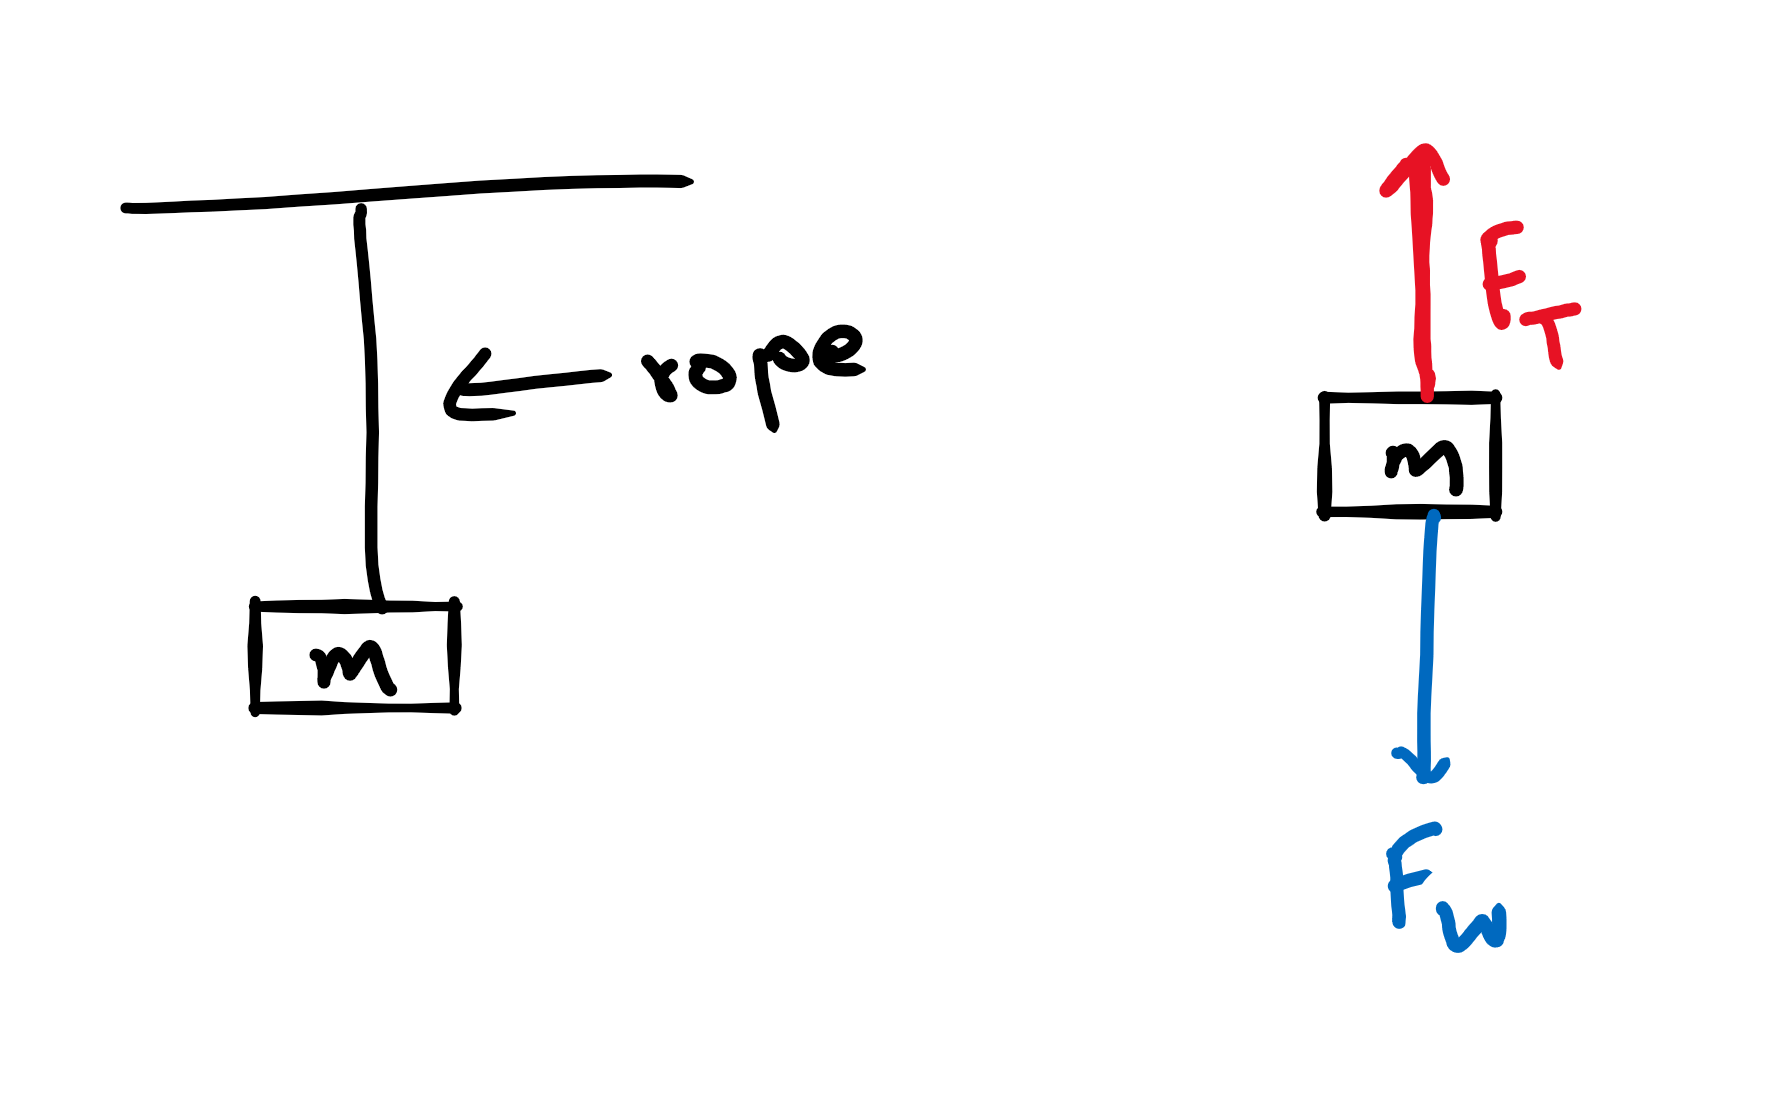 rope
m
F_T
m
F_W